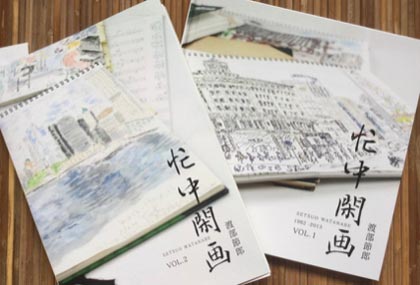 忙中閑画
渡部節郎
SETSUO WATANABE
VOL.2
忙中閑画
渡部節郎
SETSUO WATANABE
1982-2013
VOL.1